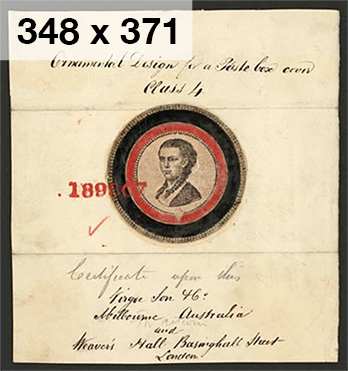 348 x 371
Ornamental Design for a Paste box cover
Class 4
Certificate upon this
Virgoe Son & Co
Melbourne Australia
and
Weavers Hall Basinghall Street
London